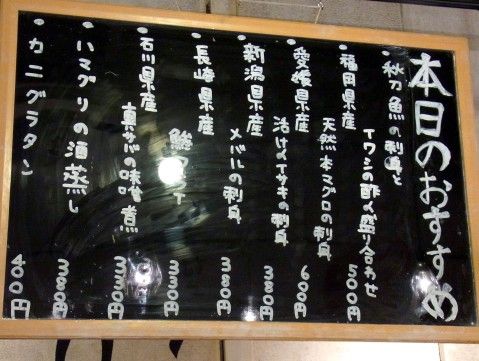 本日のおすすめ
・秋刀魚の刺身と
イワシの酢〆盛り合わせ 500円
・福岡県産
天然本マグロの刺身 600円
・愛媛県産
活〆イサキの刺身 380円
・新潟県産
メバルの刺身 380円
・長崎県産
鯵フライ 330円
・石川県産
の味噌煮 330円
・ハマグリの酒蒸し 380円
・カニグラタン 400円